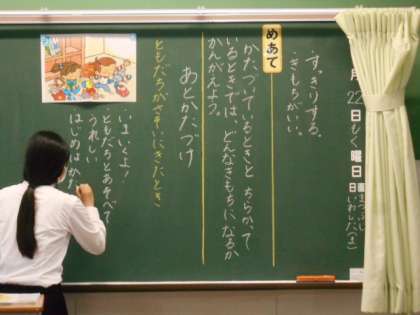 月22日もく曜日
日直
いわした(ま)
・すっきりする。
・きもちがいい。
めあて
かたづいているときと ちらかって
いるときでは、どんなきもちになるか
かんがえよう。
あとかたづけ
ともだちがさそいにきたとき
いまいくよ!
ともだちとあそべて
うれしい
はじめは